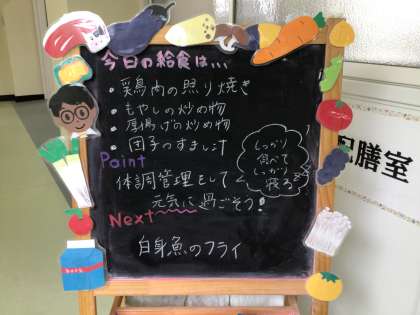 今日の給食は、、、
・鶏肉の照り焼き
・もやしの炒め物
・厚揚げの炒め物
・団子のすまし汁
Point
体調管理をして
元気に過ごそう!
しっかり
食べて
しっかり
寝る
Next
白身魚のフライ
配膳室